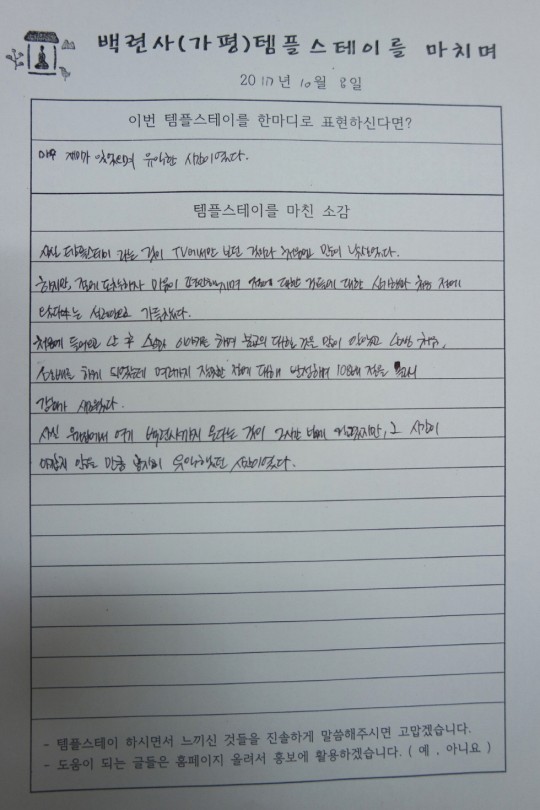 백련사(가평)템플스테이를 마치며
2017년 10월 8일
이번 템플스테이를 한마디로 표현하신다면?
매우 재미가 있었으며 유익한 시간이었다.
템플스테이를 마친 소감
사실 템플스테이 라는 것이 TV에서만 보던 것이라 처음에는 많이 낯설었다.
하지만, 절에 도착하자 마음이 편안해지며 절에 대한 것들에 대한 신기함과 처음 절에
왔다는 설레임으로 가득찼다.
처음에 들어오고 난 후 스님과 이야기를 하며 불교의 대한 것을 많이 알았고 난생 처음,
108배를 하게 되었는데 여태까지 잘못한 점에 대해 반성하며 108배 절을
감회가 새로웠다.
사실 에서 여기 백련사까지 오는 것이 2시간 넘게 걸렸지만, 그 시간이
아깝지 않을 만큼 굉장히 유익했던 시간이었다.
- 템플스테이 하시면서 느끼신 것들을 진솔하게 말씀해주시면 고맙겠습니다.
- 도움이 되는 글들은 홈페이지 올려서 홍보에 활용하겠습니다. ( 예 , 아니요 )